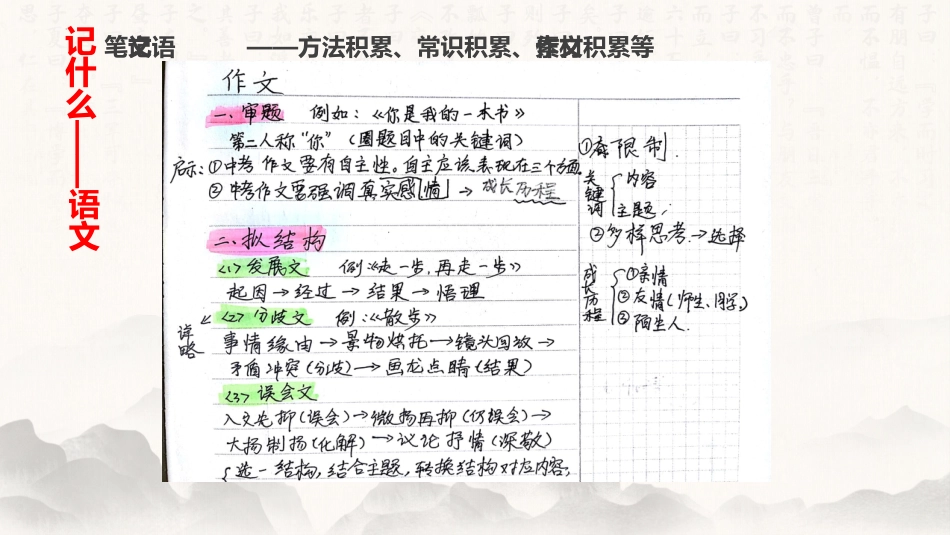 记什么——语文
笔记语 ——方法积累、常识积累、素材积累等
作文
一、审题 例如：《你是我的一本书》
第二人称“你”（圈题目中的关键词）
启示：①中考作文要有自主性。自主应该表现在三个方面
②中考作文要强调真实感情→成长历程
二、拟结构
<1>发展文 例：《走一步，再走一步》
起因→经过→结果→悟理
<2>分歧文 例：《散步》
详略
事情缘由→景物烘托→镜头回放→
矛盾冲突（分歧）→画龙点睛（结果）
<3>误会文
入文先抑（误会）→微扬再抑（仍误会）→
大扬制扬（化解）→议论抒情（深敬）
选一结构，结合主题，转换结构对应内容；
①有限制．
关键词
内容
主题；
②多样思考．→选择
成长历程
①亲情
②友情（师生、同学）
③陌生人．